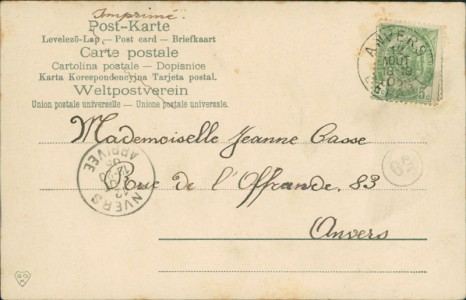 Imprimé.
Post-Karte
Levelező-Lap — Post card — Briefkaart
Carte postale
Cartolina postale — Dopisnice
Karta Korespondencyjna Tarjeta postal.
Weltpostverein
Union postale universelle — Unione postale universale.
ANVERS
12
AOUT
18-19
5
Mademoiselle Jeanne Casse
Rue de l'Offrande, 83
Anvers
ANVERS
ARRIVÉE
12